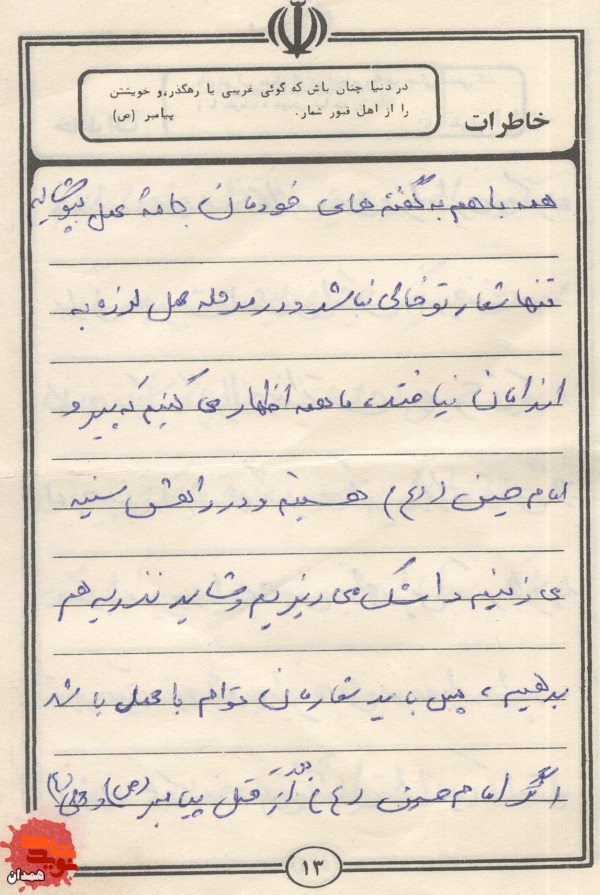 در دنیا چنان باش که گوئی غریبی یا رهگذر، و خویشتن
را از اهل قبور شمار. پیامبر (ص)
خاطرات
همه با هم به گفته های خودمان جامهٔ عمل بپوشانیم
تنها شعار توخالی نباشد و در مرحله عمل لرزه به
اندامان نیافتد، ما همه اظهار می کنیم که پیرو
امام حسین (ع) هستیم و در راهش سینه
می زنیم و اشک می ریزیم و شاید نذریه هم
بدهیم، پس باید شعارمان توام با عمل باشد
اگر امام حسین (ع) بعد از قتل پیامبر (ص) و
۱۳
همدان